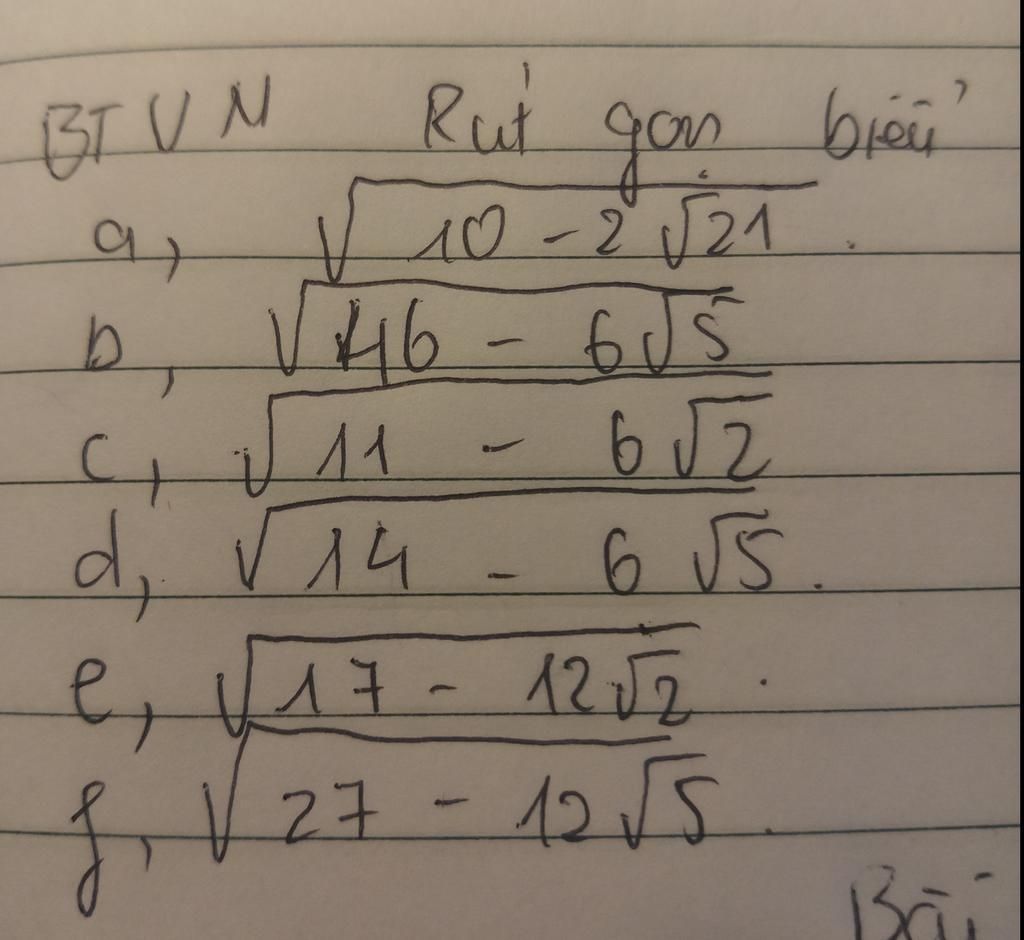 BTVN Rút gọn biểu
a, √(10 - 2√21).
b, √(46 - 6√5)
c, √(11 - 6√2)
d, √(14 - 6√5).
e, √(17 - 12√2).
f, √(27 - 12√5).
Bài